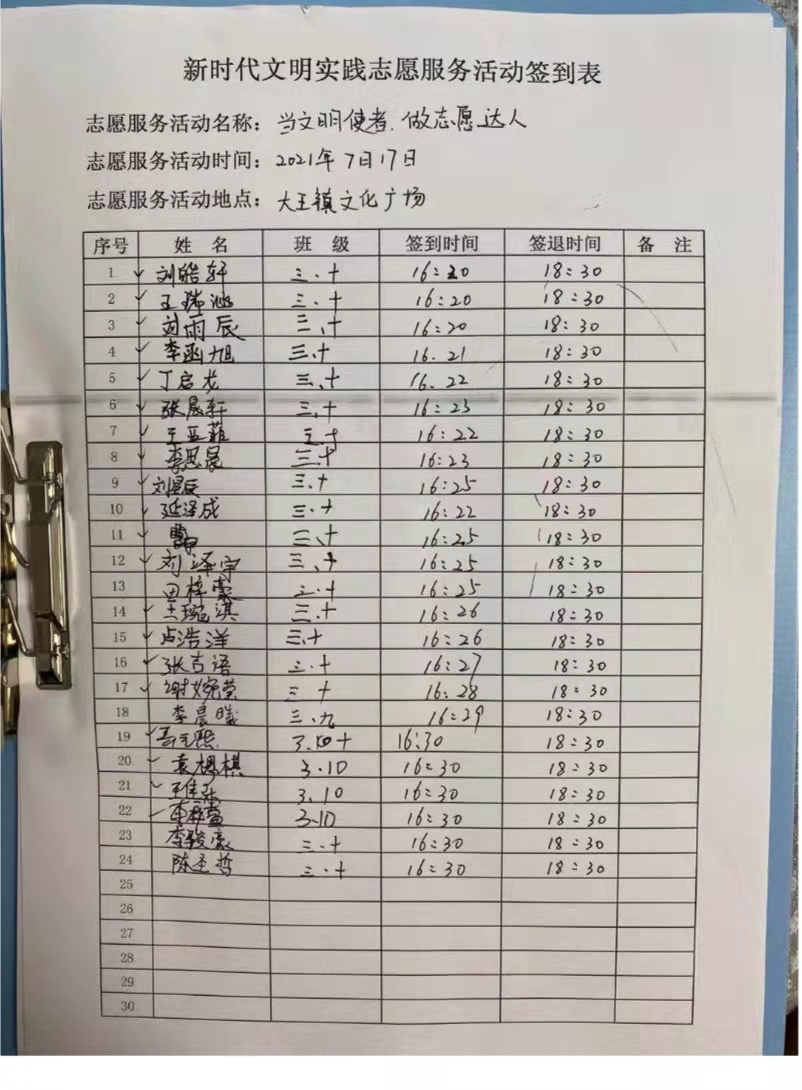 新时代文明实践志愿服务活动签到表
志愿服务活动名称：当文明使者.做志愿达人
志愿服务活动时间：2021年7月17日
志愿服务活动地点：大王镇文化广场
序号 姓名 班级 签到时间 签退时间 备注
1 刘皓轩 三.十 16:20 18:30
2 王瑞涵 三.十 16:20 18:30
3 刘雨辰 三.十 16:20 18:30
4 李函旭 三.十 16.21 18:30
5 丁启龙 三.十 16.22 18:30
6 张晨轩 三.十 16:23 18:30
7 王亚菲 三十 16:22 18:30
8 李思晨 三.十 16:23 18:30
9 刘昱辰 三.十 16:25 18:30
10 延泽成 三.十 16:22 18:30
11 三.十 16:25 18:30
12 刘泽宇 三.十 16:25 18:30
13 田梓豪 三.十 16:25 18:30
14 王琬淇 三.十 16:26 18:30
15 卢浩洋 三.十 16:26 18:30
16 张吉语 三.十 16:27 18:30
17 谢婉莹 三十 16:28 18:30
18 李晨曦 三.九 16:29 18:30
19 3.十 16:30 18:30
20 袁楒棋 3.10 16:30 18:30
21 3.10 16:30 18:30
22 3.10 16:30 18:30
23 李骏豪 三.十 16:30 18:30
24 陈圣哲 三.十 16:30 18:30
25
26
27
28
29
30